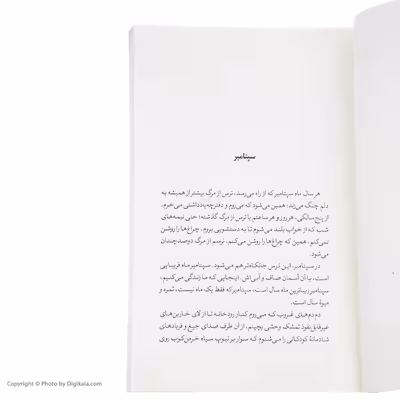 سپتامبر
هر سال ماه سپتامبر که از راه می‌رسد، ترس از مرگ بیشتر از همیشه به
دلم چنگ می‌زند؛ همین می‌شود که می‌روم و دفترچه‌یادداشتی می‌خرم.
از پنج‌سالگی، هر روز و هر ساعتم با ترس از مرگ گذشته؛ حتی نیمه‌های
شب که از خواب بلند می‌شوم تا به دستشویی بروم، چراغ‌ها را روشن
نمی‌کنم. همین که چراغ‌ها را روشن می‌کنم، ترسم از مرگ دوصدچندان
می‌شود.
در سپتامبر، این ترس جانکاه‌تر هم می‌شود. سپتامبر ماه فریبایی
است، با آن آسمان صاف و آبی‌اش. اینجایی که ما زندگی می‌کنیم،
سپتامبر زیباترین ماه سال است. سپتامبر که فقط یک ماه نیست، ثمره و
میوهٔ سال است.
دم‌دم‌های غروب که می‌روم کنار رودخانه تا از لای خاربن‌های
غیرقابل‌نفوذ تمشک وحشی بچینم، از آن طرف صدای جیغ و فریادهای
شادمانهٔ کودکانی را می‌شنوم که سوار بر تیوپ سیاه خرمن‌کوب روی
Copyright © Photo by Digikala.com